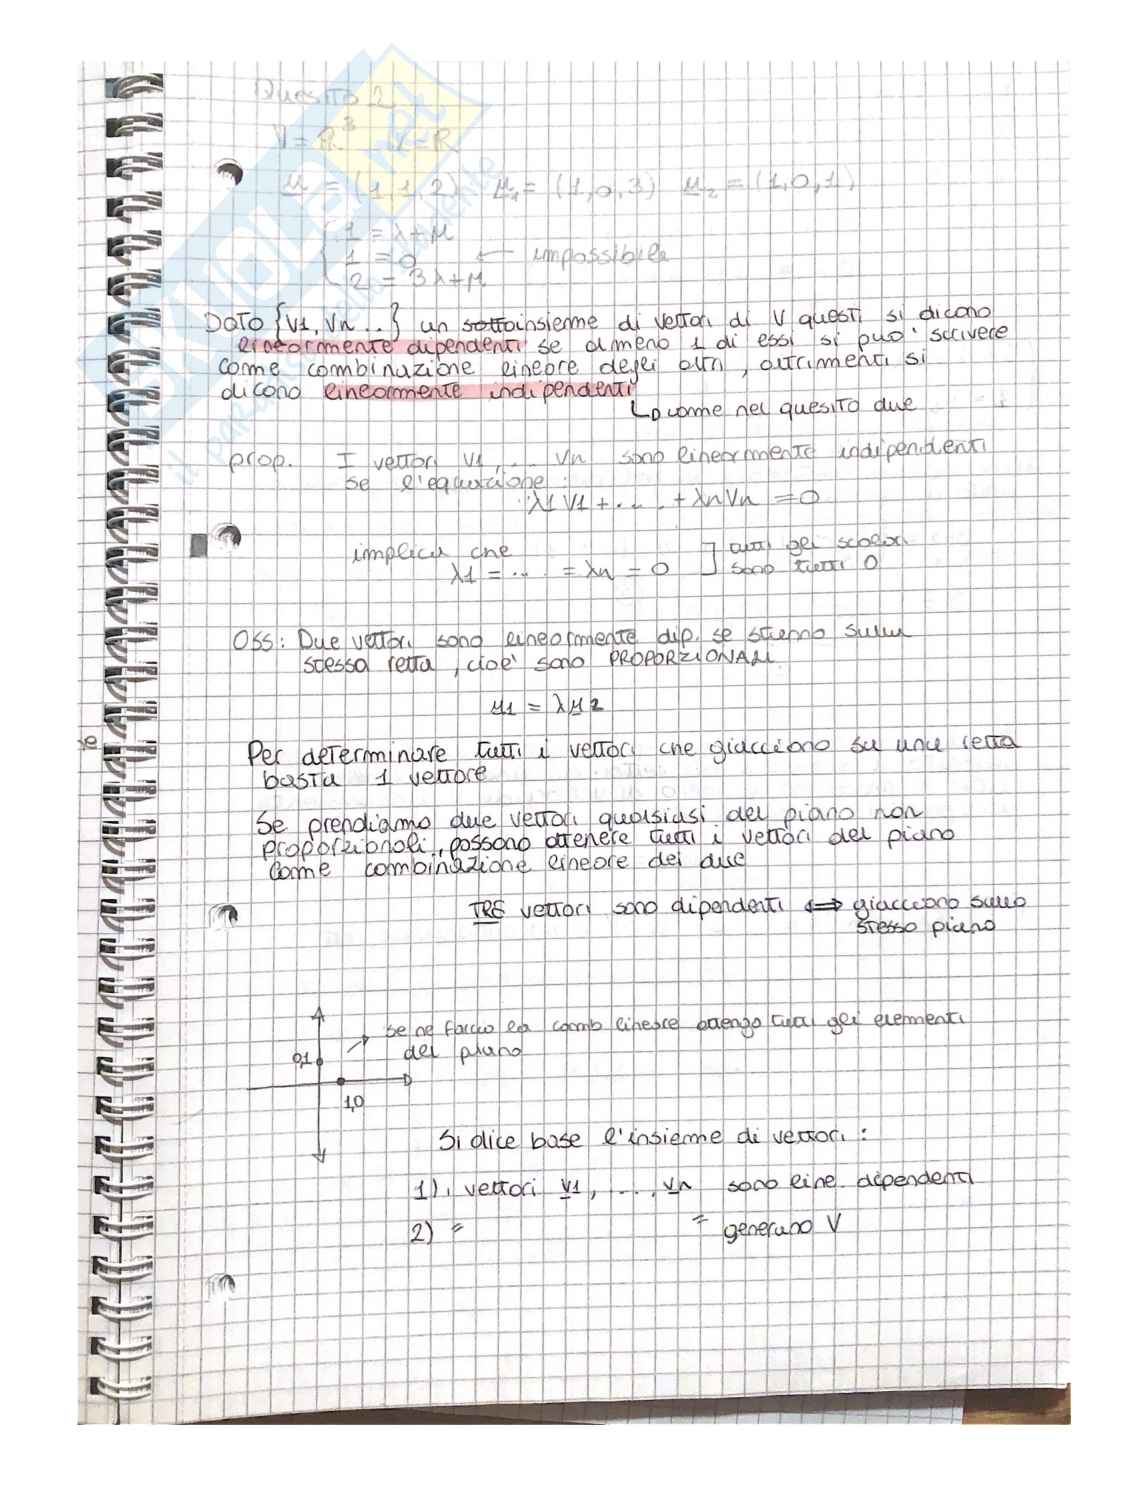 Quesito 2
V = R³ K = R
u = (1,1,2) u1 = (1,0,3) u2 = (1,0,1)
1 = λ+μ
1 = 0 ← impossibile
2 = 3λ+μ
DATO {V1, Vn ..} un sottoinsieme di vettori di V questi si dicono
linearmente dipendenti se almeno 1 di essi si può scrivere
come combinazione lineare degli altri, altrimenti si
dicono linearmente indipendenti
↳ come nel quesito due
prop. I vettori V1, ... Vn sono linearmente indipendenti
se l'equazione:
λ1 V1 + ... + λn Vn = 0
implica che ] tutti gli scalari
λ1 = ... = λn = 0 sono tutti 0
OSS: Due vettori sono linearmente dip. se stanno sulla
stessa retta, cioè sono PROPORZIONALI
u1 = λ u2
Per determinare tutti i vettori che giacciono su una retta
basta 1 vettore
Se prendiamo due vettori qualsiasi del piano non
proporzionali, possono ottenere tutti i vettori del piano
come combinazione lineare dei due
TRE vettori sono dipendenti ⟺ giacciono sullo
stesso piano
se ne faccio la comb lineare ottengo tutti gli elementi
del piano
0,1
1,0
Si dice base l'insieme di vettori:
1) i vettori v1, ..., vn sono line. dipendenti
2) = = generano V